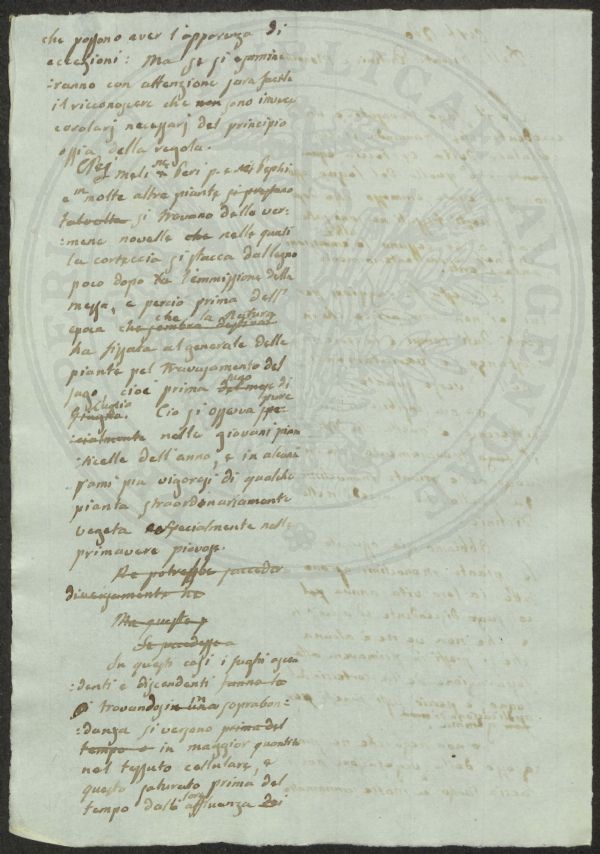 che possono aver l'apparenza di
eccezioni: Ma se si esamine-
:ranno con attenzione sara facile
il riconoscere che non sono invece
corolarj necessarj del principio
ossia della regola.
meli Peri
e in molte altre piante si
talvolta si trovano delle ver-
:mene novelle che nelle quali
la corteccia si stacca dal legno
poco dopo l'emmissione della
messa, e percio prima dell'
epoca che sembra destinar
che la Natura
ha fissata al generale delle
piante pel travasamento del
sugo, cioè prima del mese di
Luglio. Cio si osserva pure spe-
:cialmente nelle giovani pian
:ticelle dell'anno, e in alcuni
rami piu vigorosi di qualche
pianta straordinariamente
vegeta specialmente nelle
primavere piovose.
Ne potrebbe succeder
diversamente
Ma queste
Se succedesse
In questi casi i sughi ascen
:denti e discendenti fanno la
trovandosi in una soprabon-
:danza si versono prima del
tempo e in maggior quantità
nel tessuto cellulare, e
questo saturato prima del
tempo dall' loro affluenza dei